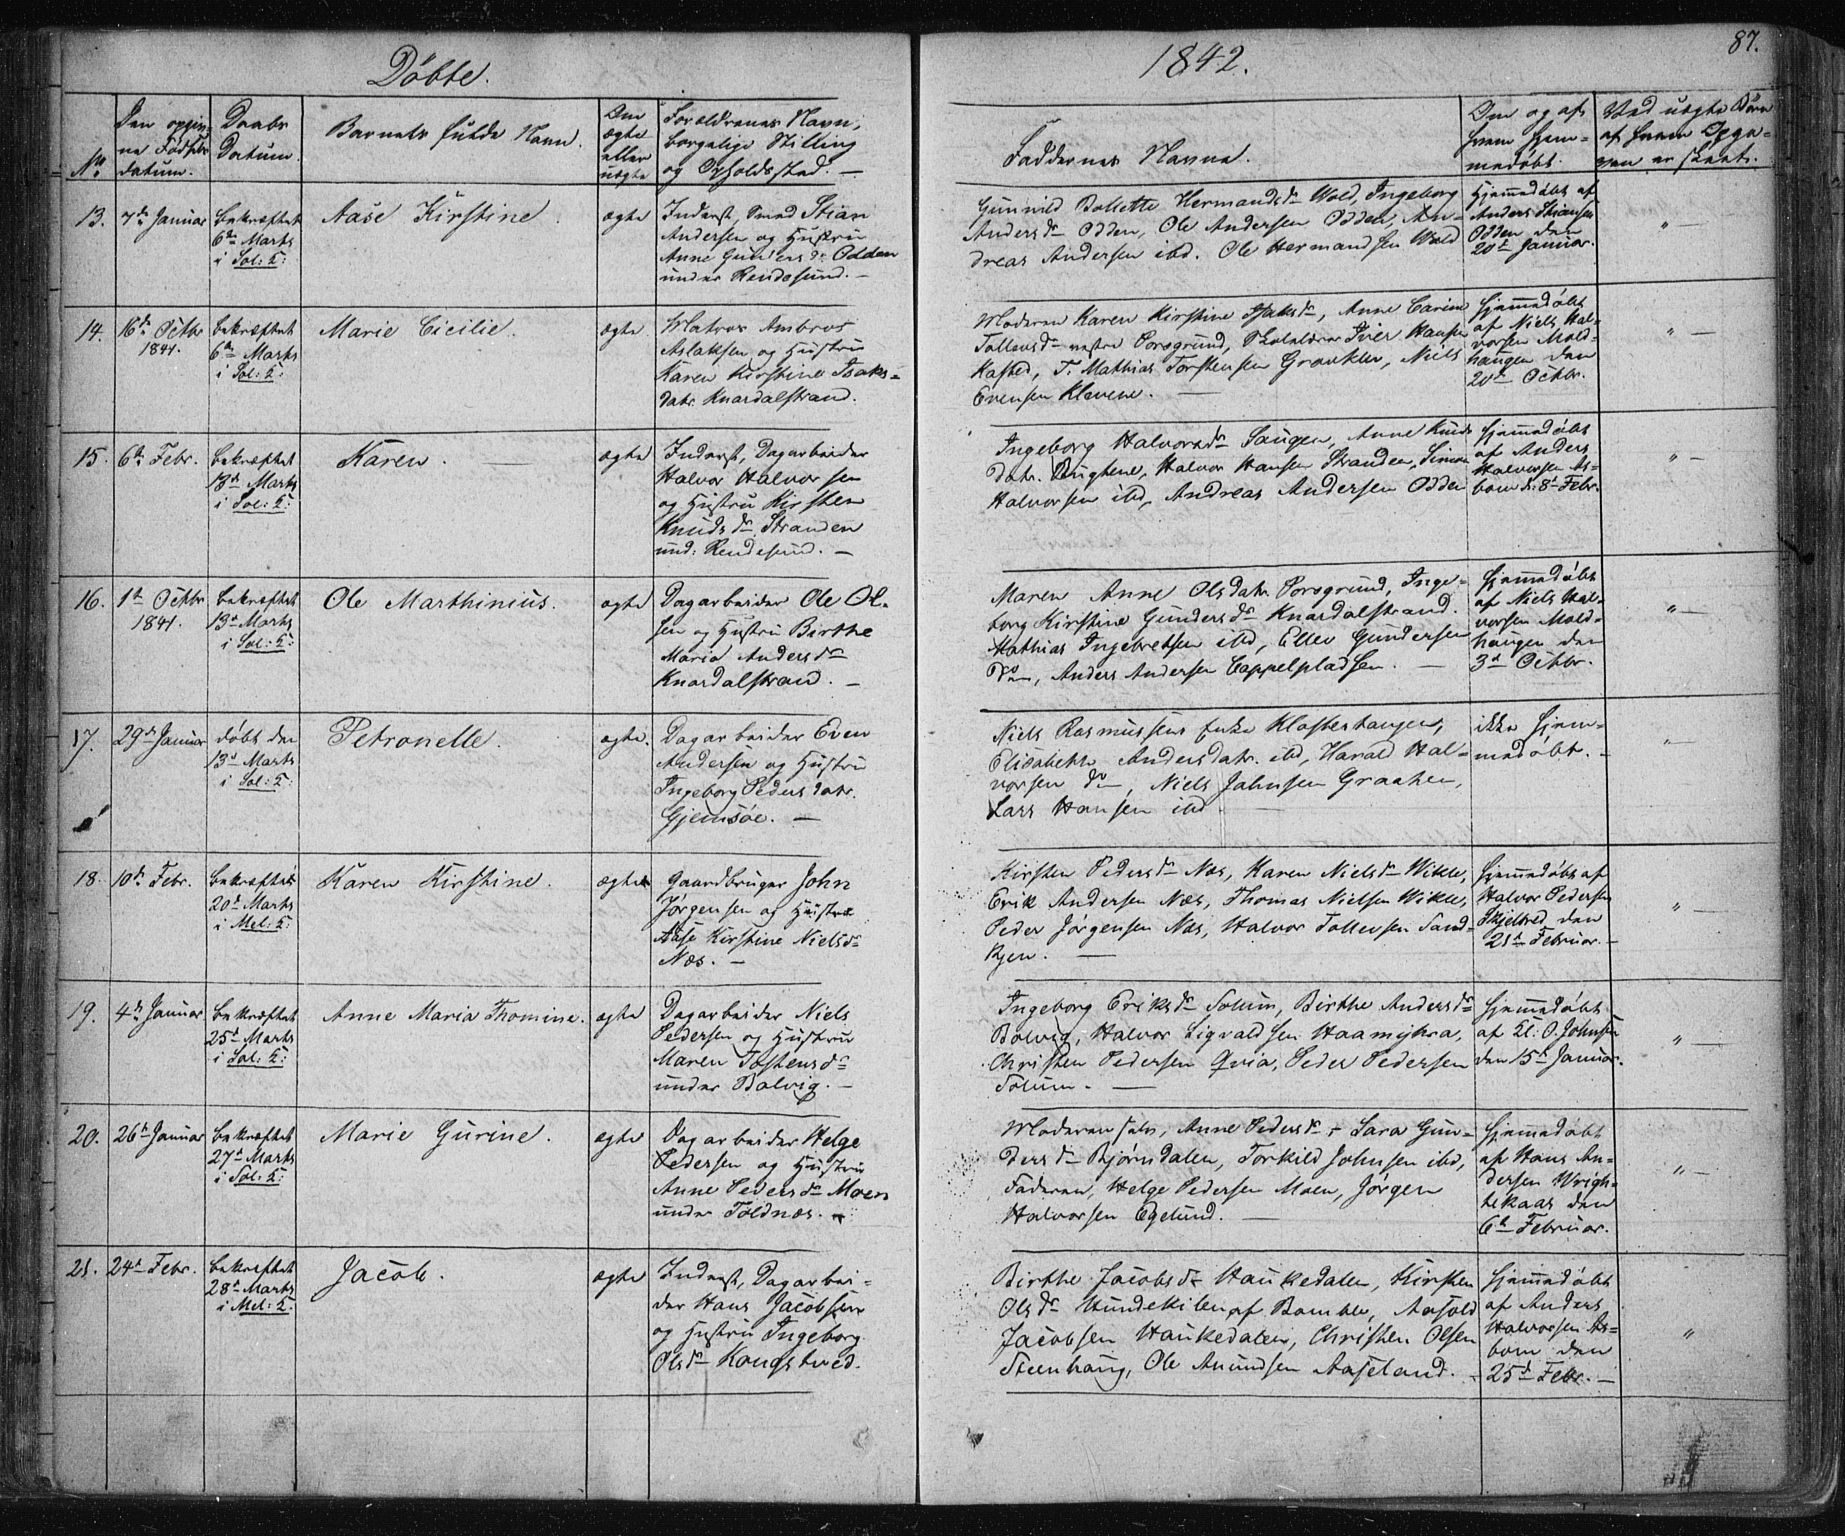 Döbte.
1842.
87.
No
Den opgiv-
ne Födsels
datum.
Daabs
Datum.
Barnets fulde Navn.
Om
ægte
eller
uægte
Forældrenes Navn,
borgelige Stilling
og Opholdssted. —
Faddernes Navne.
Om og af
hvem hjem-
medöbt.
Ved uægte Börn
af hvem Opga-
ven er skeet.
13. 7de Januar
bekræftet
6te Marts
i Sol: K:
Aase Kirstine
ægte
Inderst, Smed Stian
Andersen og Hustru
Anne Gundersdr Odden
under Rendesund. —
Gunnild Bollette Hermandsdr Wold, Ingeborg
Andersdr Odden, Ole Andersen Odden, An-
dreas Andersen ibd. Ole Hermandsen Wold
Hjemmedöbt af
Anders Stiansen
Odden den
20de Januar.
" —
14. 16de Octbr
1841.
bekræftet
6te Marts
i Sol: K:
Marie Cicilie.
ægte
Matros Ambros
Aslaksen og Hustru
Karen Kirstine Isaks-
datr. Knardalstrand.
Moderen Karen Kirstine Isaksdr, Anne Carine
Tollevsdr vestre Porsgrund, Iver Hansen
Kasted, T. Mathias Torstensen Graaklev, Niels
Evensen Klevene. —
Hjemmedöbt
af Niels Hal-
vorsen Mold-
haugen den
20de Octbr.
" —
15. 6te Febr.
bekræftet
13de Marts
i Sol: K:
Karen. —
ægte
Inderst, Dagarbeider
Halvor Halvorsen
og Hustru Kirsten
Knudsdr Stranden
und: Rendesund. —
Ingeborg Halvorsdr Haugen, Anne Knuds
Datr. Halvor Hansen Stranden, Simon
Halvorsen ibd, Andreas Andersen Odden
Hjemmedöbt
af Anders
Halvorsen As-
bom d: 8de Febr.
" —
16. 1ste Octbr
1841.
bekræftet
13de Marts
i Sol: K:
Ole Marthinius.
ægte
Dagarbeider Ole Ol-
sen og Hustru Birthe
Maria Andersdr
Knardalstrand. —
Maren Anne Olsdatr. Porsgrund, Inge-
borg Kirstine Gundersdr Knardalstrand.
Mathias Ingebretsen ibd, Ellev Gundersen
Do, Anders Andersen Cappelpladsen. —
Hjemmedöbt
af Niels Hal-
vorsen Mold-
haugen den
3de Octbr.
" —
17. 29de Januar
döbt den
13de Marts
i Sol: K:
Petronelle.
ægte.
Dagarbeider Even
Andersen og Hustru
Ingeborg Pedersdatr.
Gjemsöe. —
Niels Rasmussens Enke Klosterhaugen,
Elisabeth Andersdatr. ibd, Harald Hal-
vorsen do, Niels Johnsen Graaten,
Lars Hansen ibd
ikke hjem-
medöbt. —
" —
18. 10de Febr.
bekræftet
20de Marts
i Mel: K:
Karen Kirstine.
ægte
Gaardbruger John
Jörgensen og Hustru
Aase Kirstine Nielsdr
Næs. —
Kirsten Pedersdr Næs, Karen Nielsdr Wikke,
Erik Andersen Næs, Thomas Nielsen Wikke,
Peder Jörgensen Næs, Halvor Tollevsen Sand-
Hjemmedöbt af
Halvor Pedersen
Skjelbred den
21de Februar. —
" —
19. 4de Januar
bekræftet
25de Marts
i Sol: K:
Anne Maria Thomine.
ægte
Dagarbeider Niels
Pedersen og Hustru
Maren Tostensdr
under Bolvig. —
Ingeborg Eriksdr Solum, Birthe Andersdr
Bolvig, Halvor Sigvaldsen
Christen Pedersen Qvia, Peder Pedersen
Solum. —
Hjemmedöbt
af Kl: O. Johnsen
den 15de Januar.
" —
20. 26de Januar
bekræftet
27de Marts
i Sol: K:
Marie Gurine.
ægte
Dagarbeider Helge
Pedersen og Hustru
Anne Pedersdr Moen
under Toldnæs. —
Moderen selv, Anne Pedersdr + Sara Gun-
dersdr Björndalen, Torkild Johnsen ibd,
Faderen, Helge Pedersen Moen, Jörgen
Halvorsen Egelund. —
Hjemmedöbt
af Hans An-
dersen Wrigh-
tekaas den
6te Februar.
" —
21. 24de Febr.
bekræftet
28de Marts
i Mel: K:
Jacob.
ægte
Inderst, Dagarbei-
der Hans Jacobsen
og Hustru Ingeborg
Olsdr Kongstved.
Birthe Jacobsdr Haukedalen, Kirsten
Olsdr Hundekilen af Bamble, Aasold
Jacobsen Haukedalen, Christen Olsen
Steenhaug, Ole Amundsen Aaseland. —
Hjemmedöbt
af Anders
Halvorsen As-
bom den
25de Febr. —
"